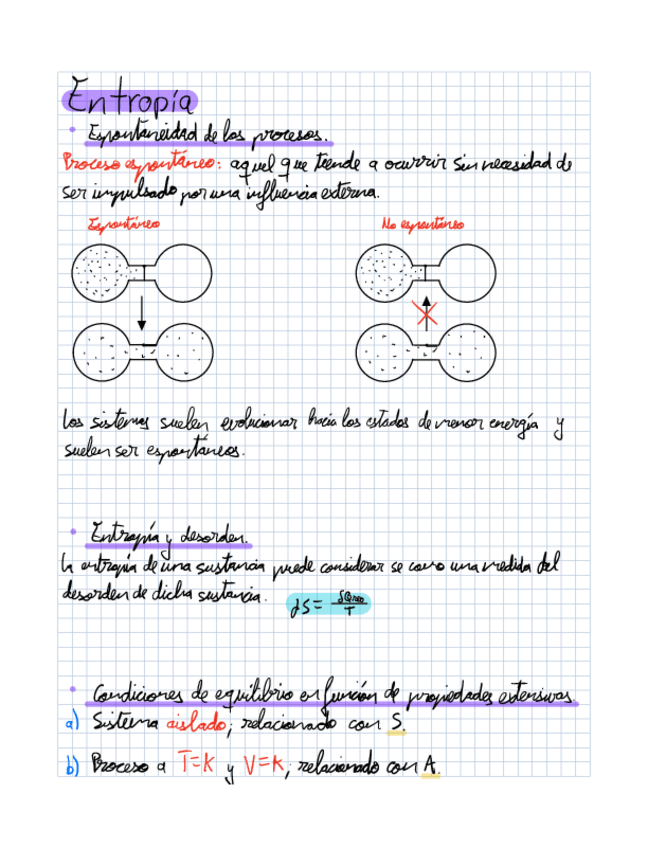 Entropía
• Espontaneidad de los procesos.
Proceso espontáneo: aquel que tiende a ocurrir sin necesidad de
ser impulsado por una influencia externa.
Espontáneo
No espontáneo
Los sistemas suelen evolucionar hacia los estados de menor energía y
suelen ser espontáneos.
• Entropía y desorden.
La entropía de una sustancia puede considerar se como una medida del
desorden de dicha sustancia.
dS = δQrev / T
• Condiciones de equilibrio en función de propiedades extensivas.
a) Sistema aislado; relacionado con S.
b) Proceso a T=K y V=K; relacionado con A.